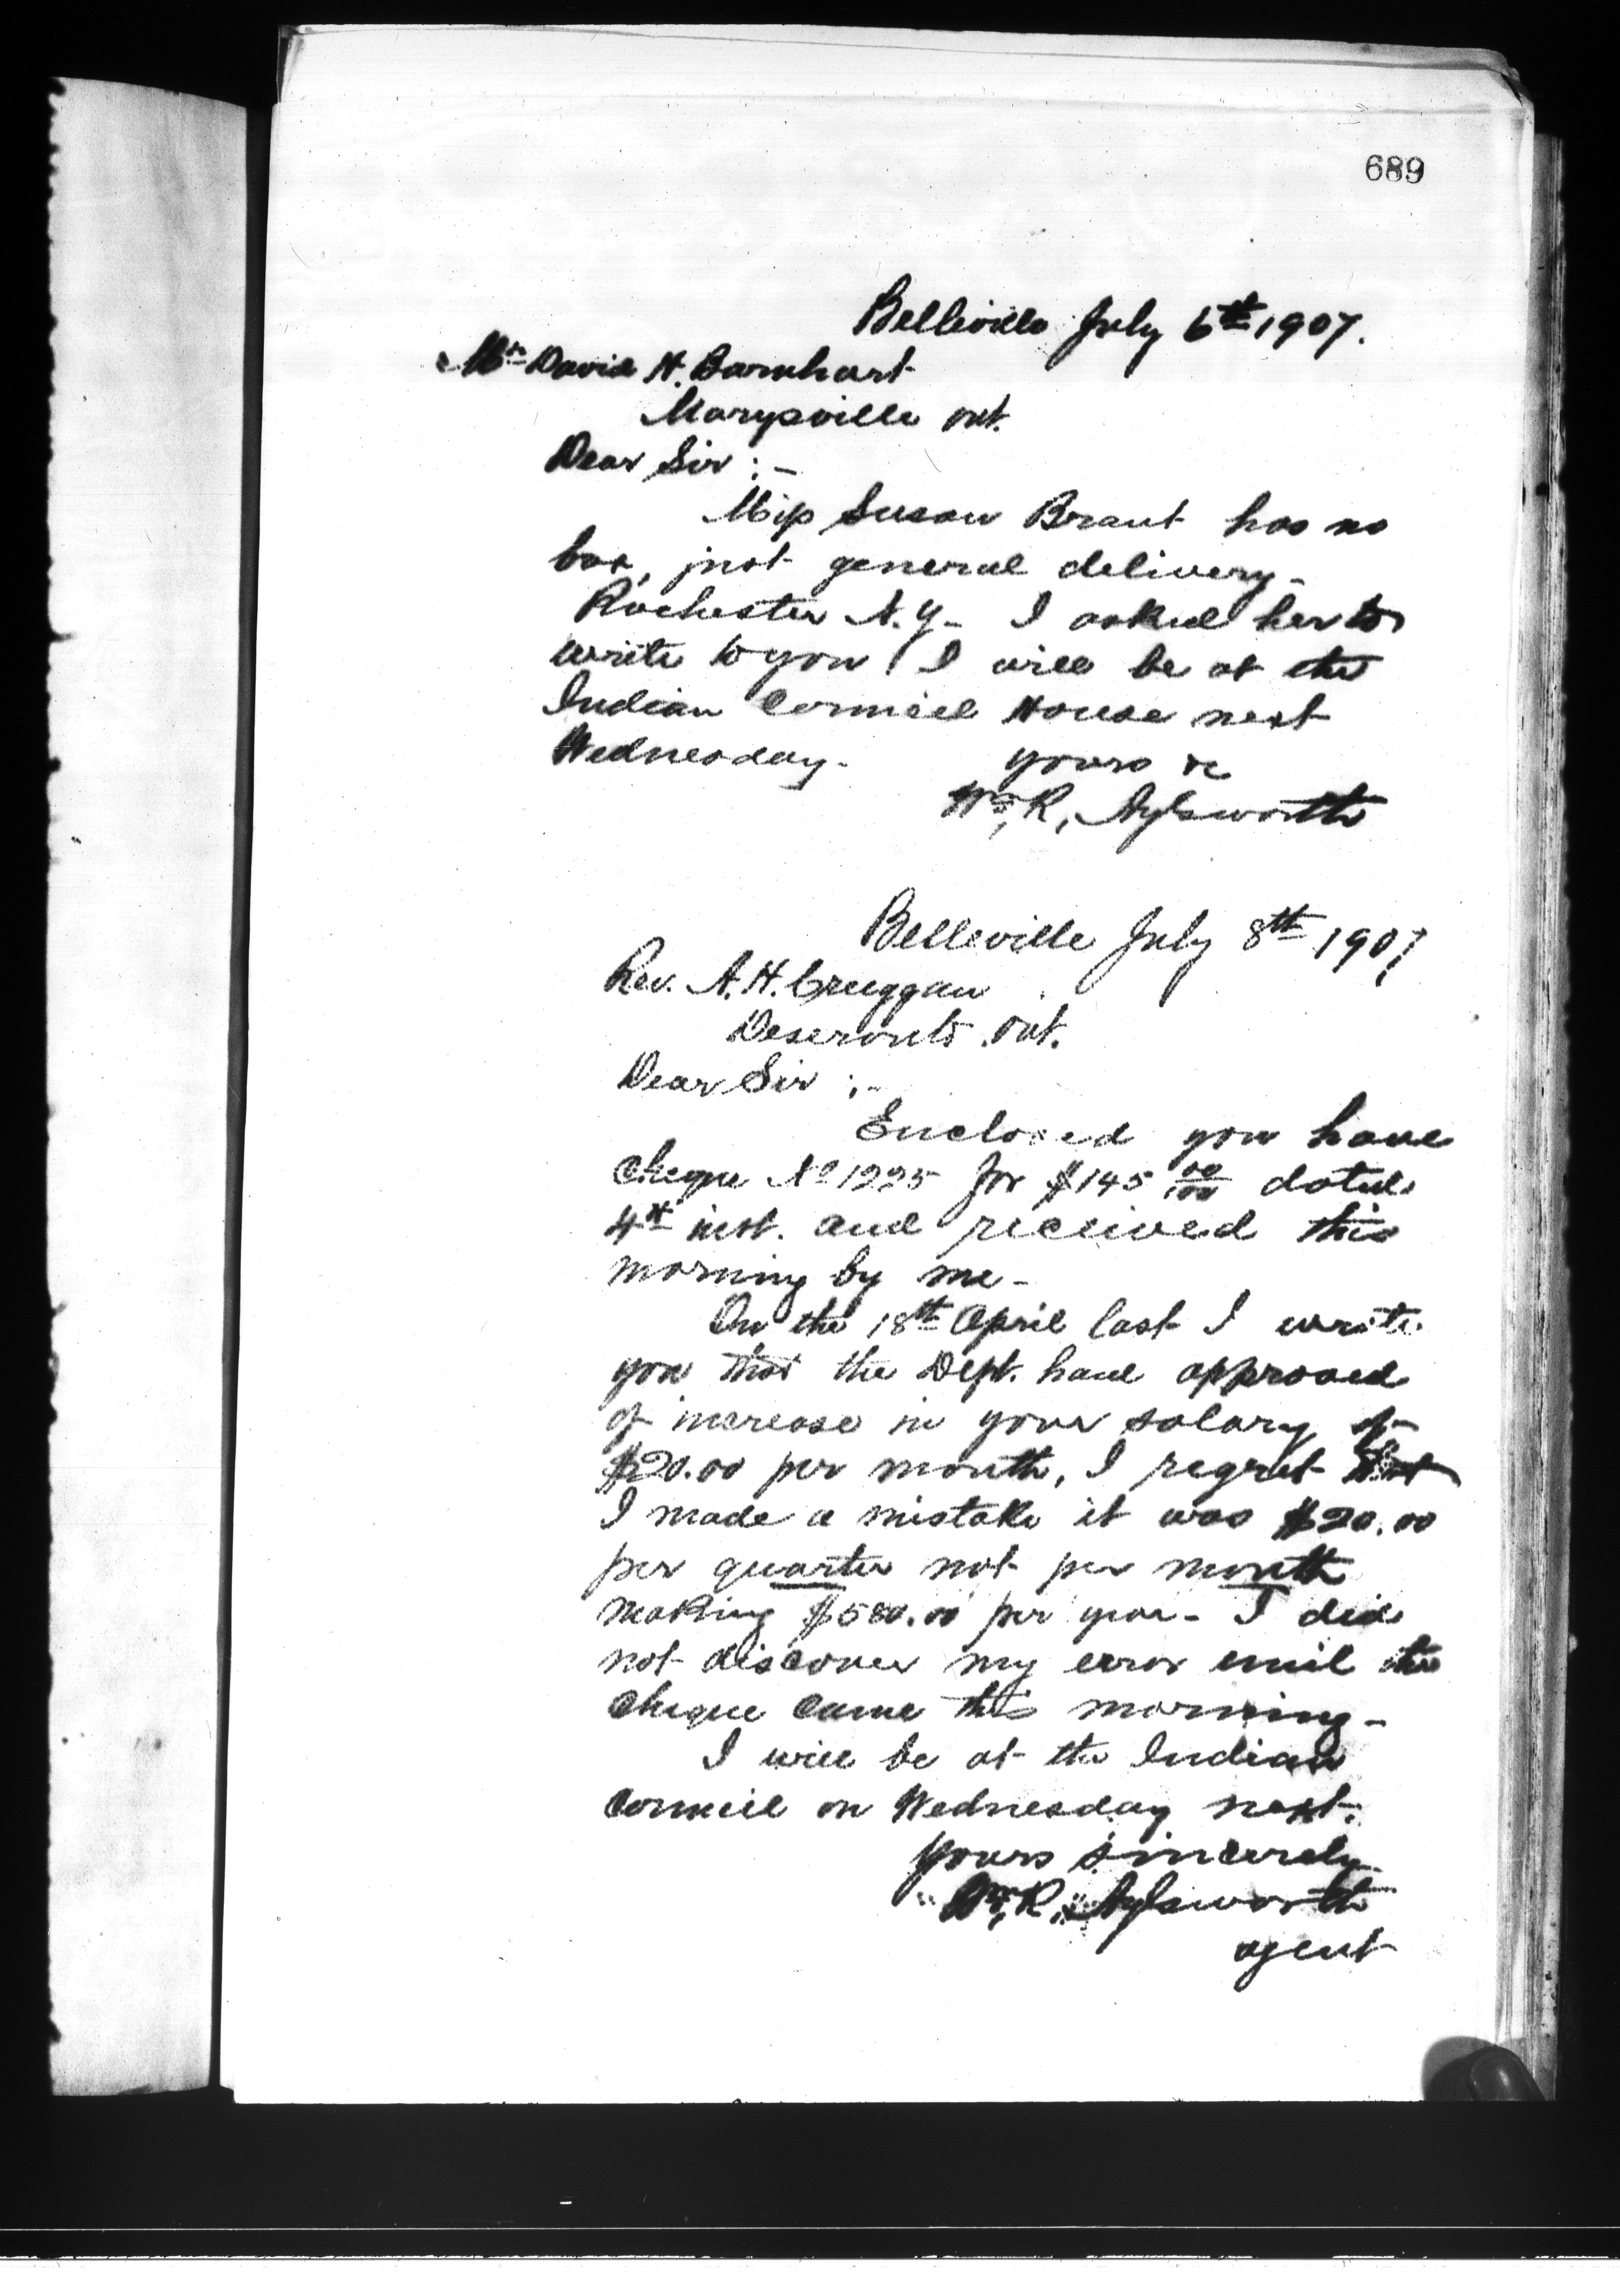 689
Belleville July 6th 1907.
Mr David H. Barnhart
Marysville Ont.
Dear Sir :-
Miss Susan Brant has no
box, just general delivery-
Rochester N.Y- I asked her to
write to you I will be at the
Indian Council House next
Wednesday- yours &c
Wm, R, Aylsworth
Belleville July 8th 1907
Rev. A. H. Creeggan
Deseronto Ont.
Dear Sir :-
Enclosed you have
Cheque No 1225 for $145 00/100 dated
4th inst. and received this
morning by me-
On the 18th April last I write
you that the Dept. had approved
of increase in your salary of
$20.00 per month, I regret that
I made a mistake it was $20.00
per quarter not per month
making $580.00 per year- I did
not discover my error until the
cheque came this morning-
I will be at the Indian
Council on Wednesday next.
Yours sincerely
Wm, R, Aylsworth
agent